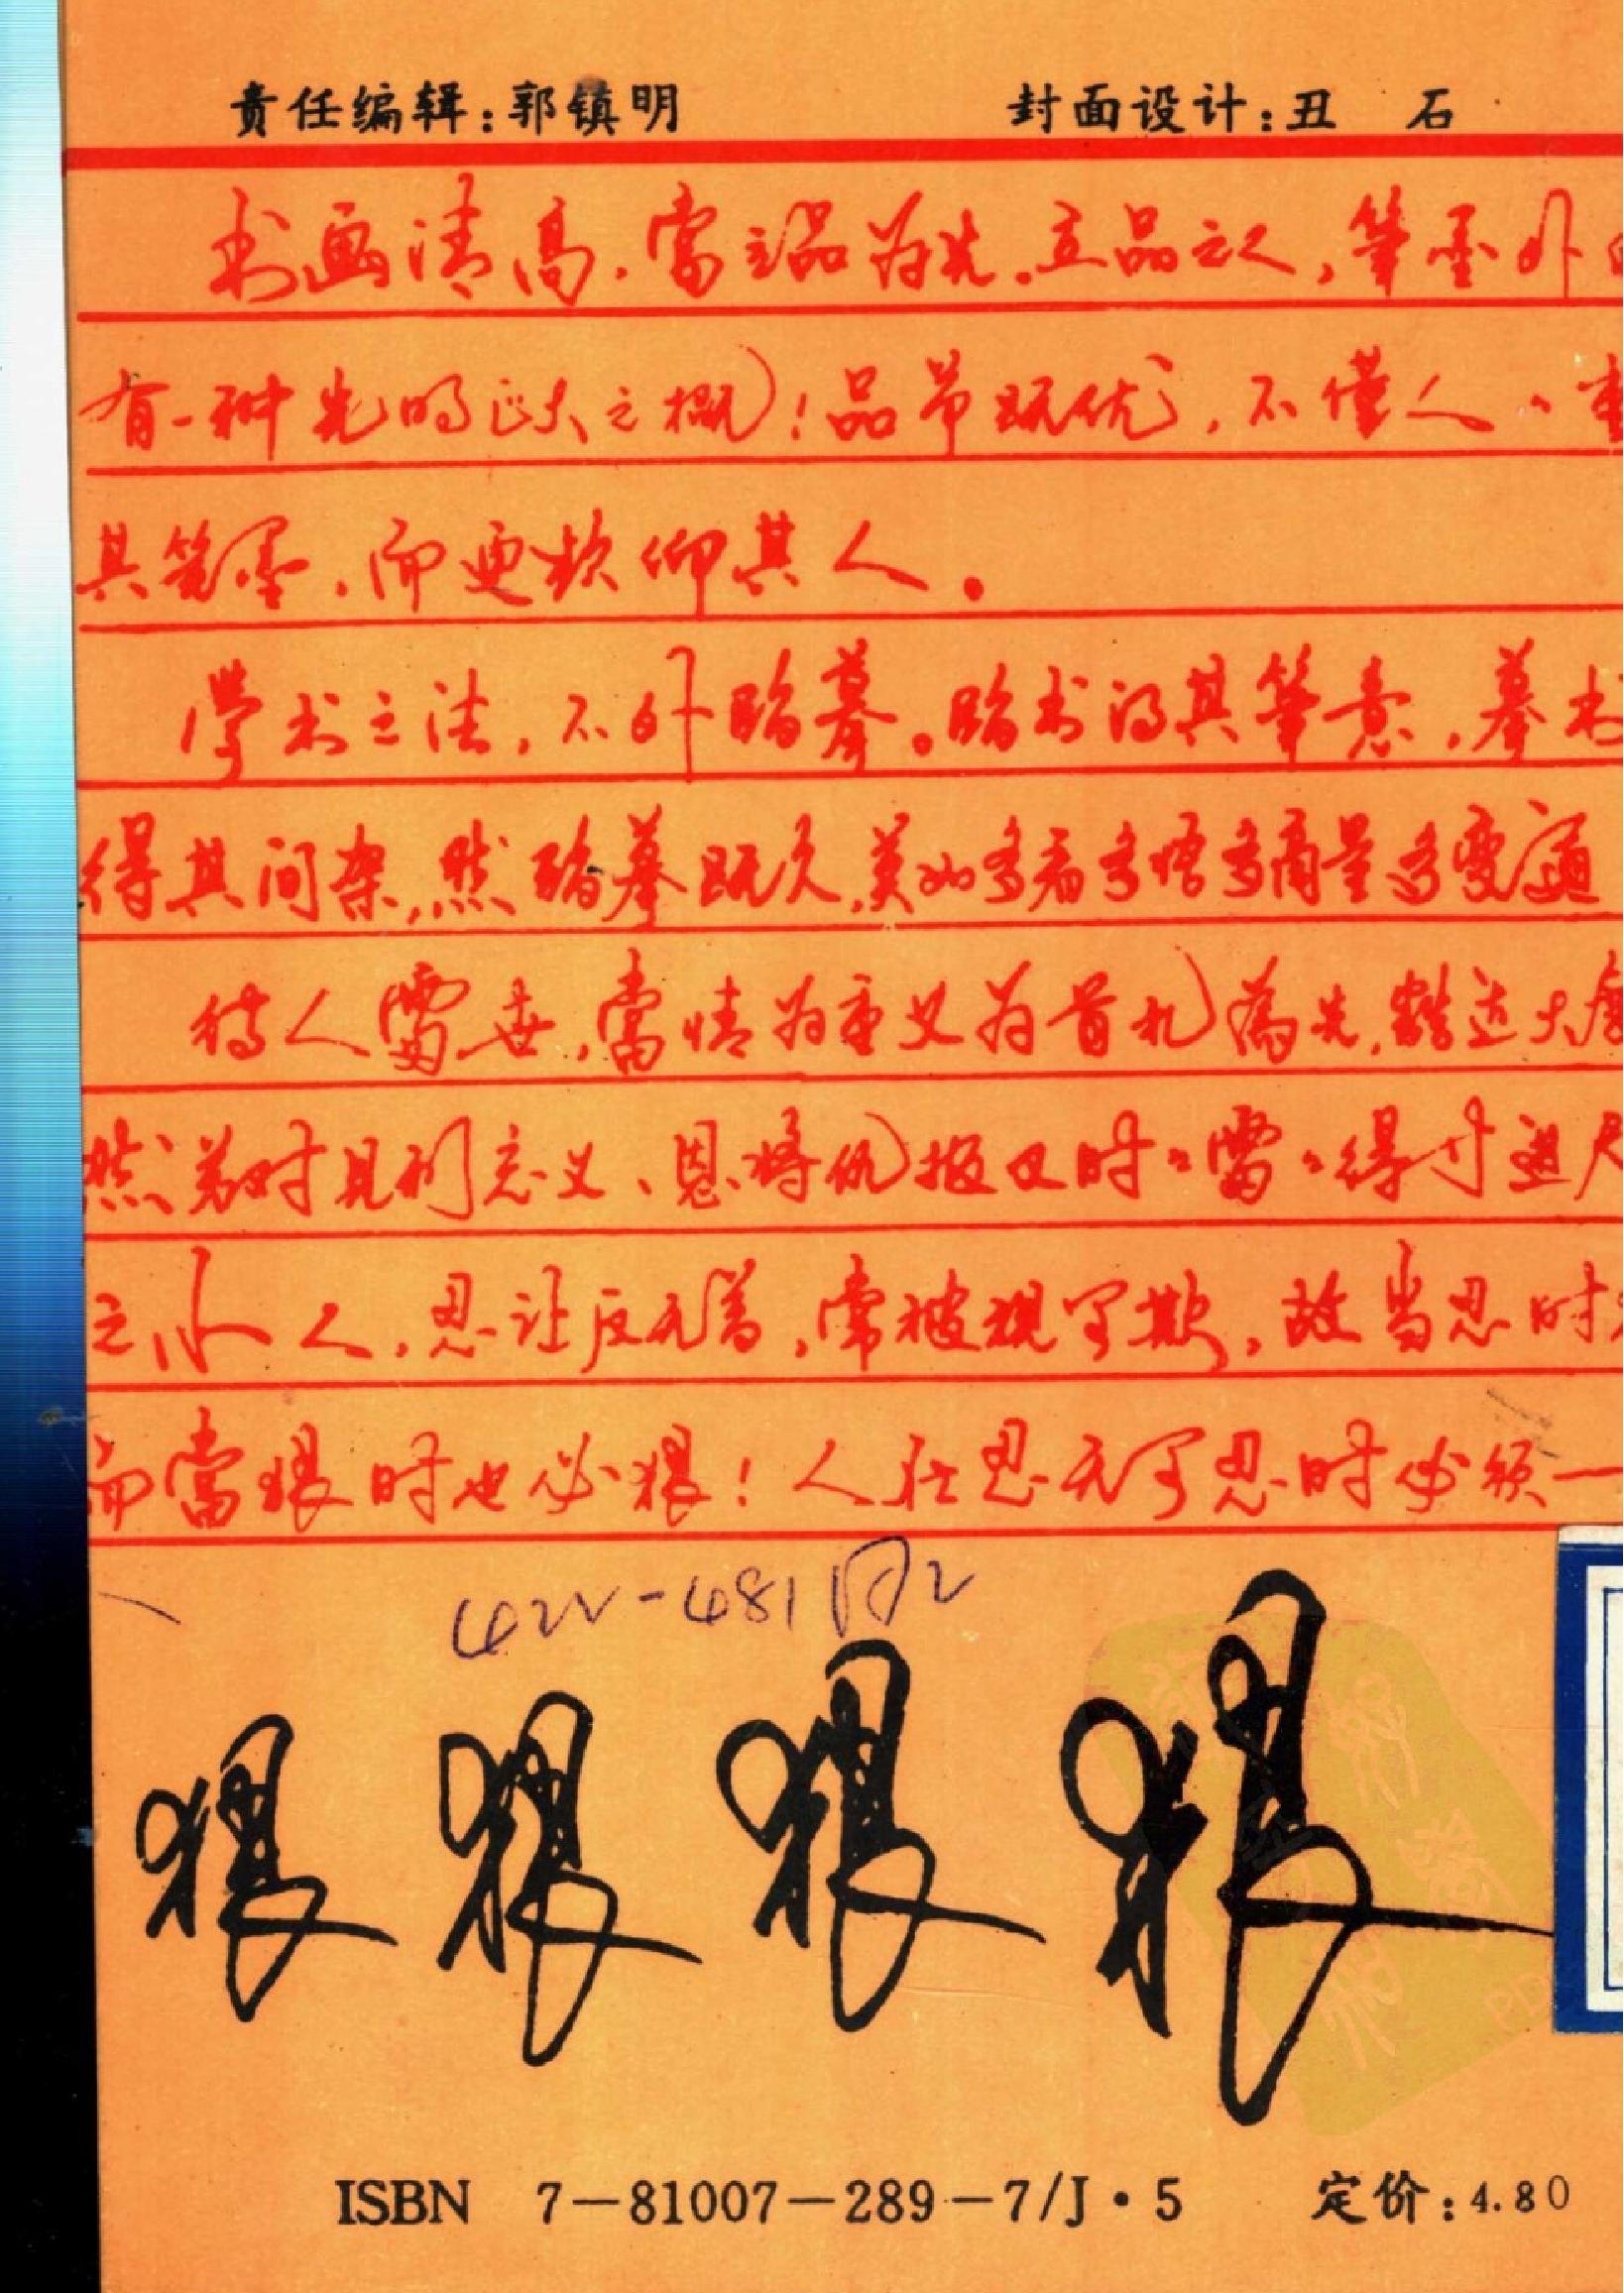 责任编辑:郭镇明 封面设计:丑 石
书画清高,当立品为先。立品之人,笔墨外
有一种光明正大之概!品节既优,不仅人、重
其笔墨,而更钦仰其人。
学书之法,不外临摹。临书得其笔意,摹书
得其间架,然临摹既久,莫如多看多悟多商量多变通
待人处世,当情为重义为首礼为先,豁达大度
然若对见利忘义、恩将仇报又时时得寸进尺
之小人,忍让反无益,常被视可欺,故当忍时
而当狠时也必狠!人在忍无可忍时必须一
422-481
狠 狠 狠 狠
ISBN 7-81007-289-7/J·5 定价:4.80